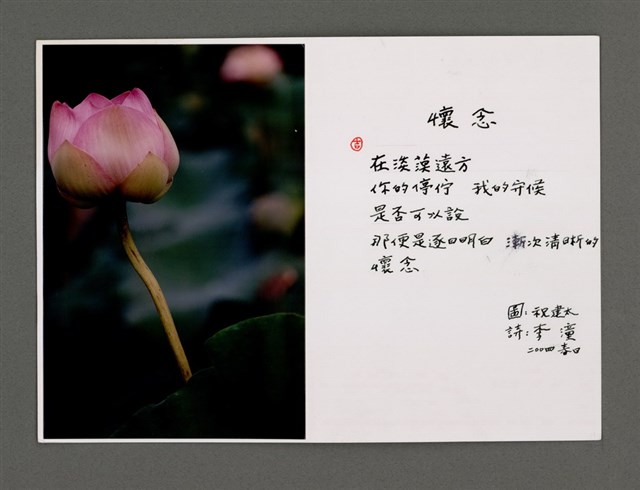 懷念
在淡漠遠方
你的停佇 我的守候
是否可以說
那便是逐日明白 漸次清晰的
懷念
圖:祝建太
詩:李潼
二〇〇四春日